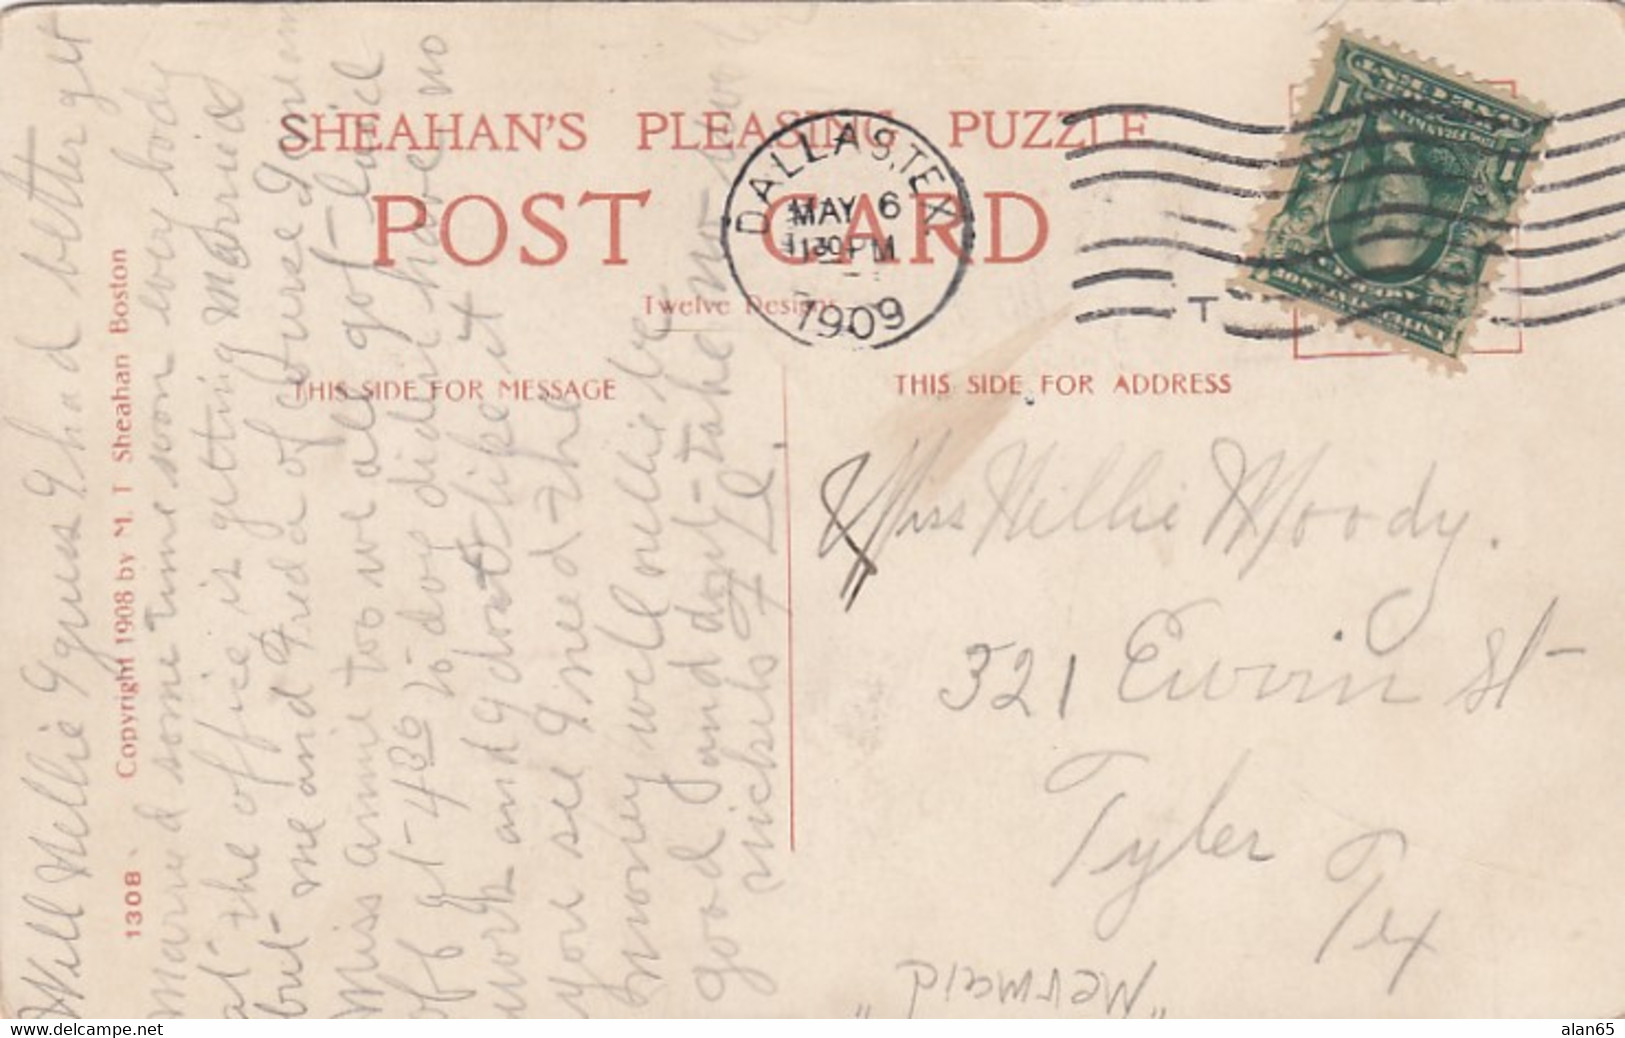 SHEAHAN'S PLEASING PUZZLE
POST CARD
Twelve Designs
THIS SIDE FOR MESSAGE
THIS SIDE FOR ADDRESS
DALLAS, TEX
MAY 6
1130 PM
1909
T
1308. Copyright 1908 by M. T Sheahan Boston
Well Nellie I gues I had better get
married some time soon every body
at the office is getting married
but me and Freda of course I mean
Miss Annie too we all got laid
off at 430 to day didn't have no
work and I don't like it
you see I need the
money well nellie be
good and don't take no
nickels
Miss Nellie Moody.
321 Erwin St
Tyler
Tex
"Mermaid"
alan65
www.delcampe.net